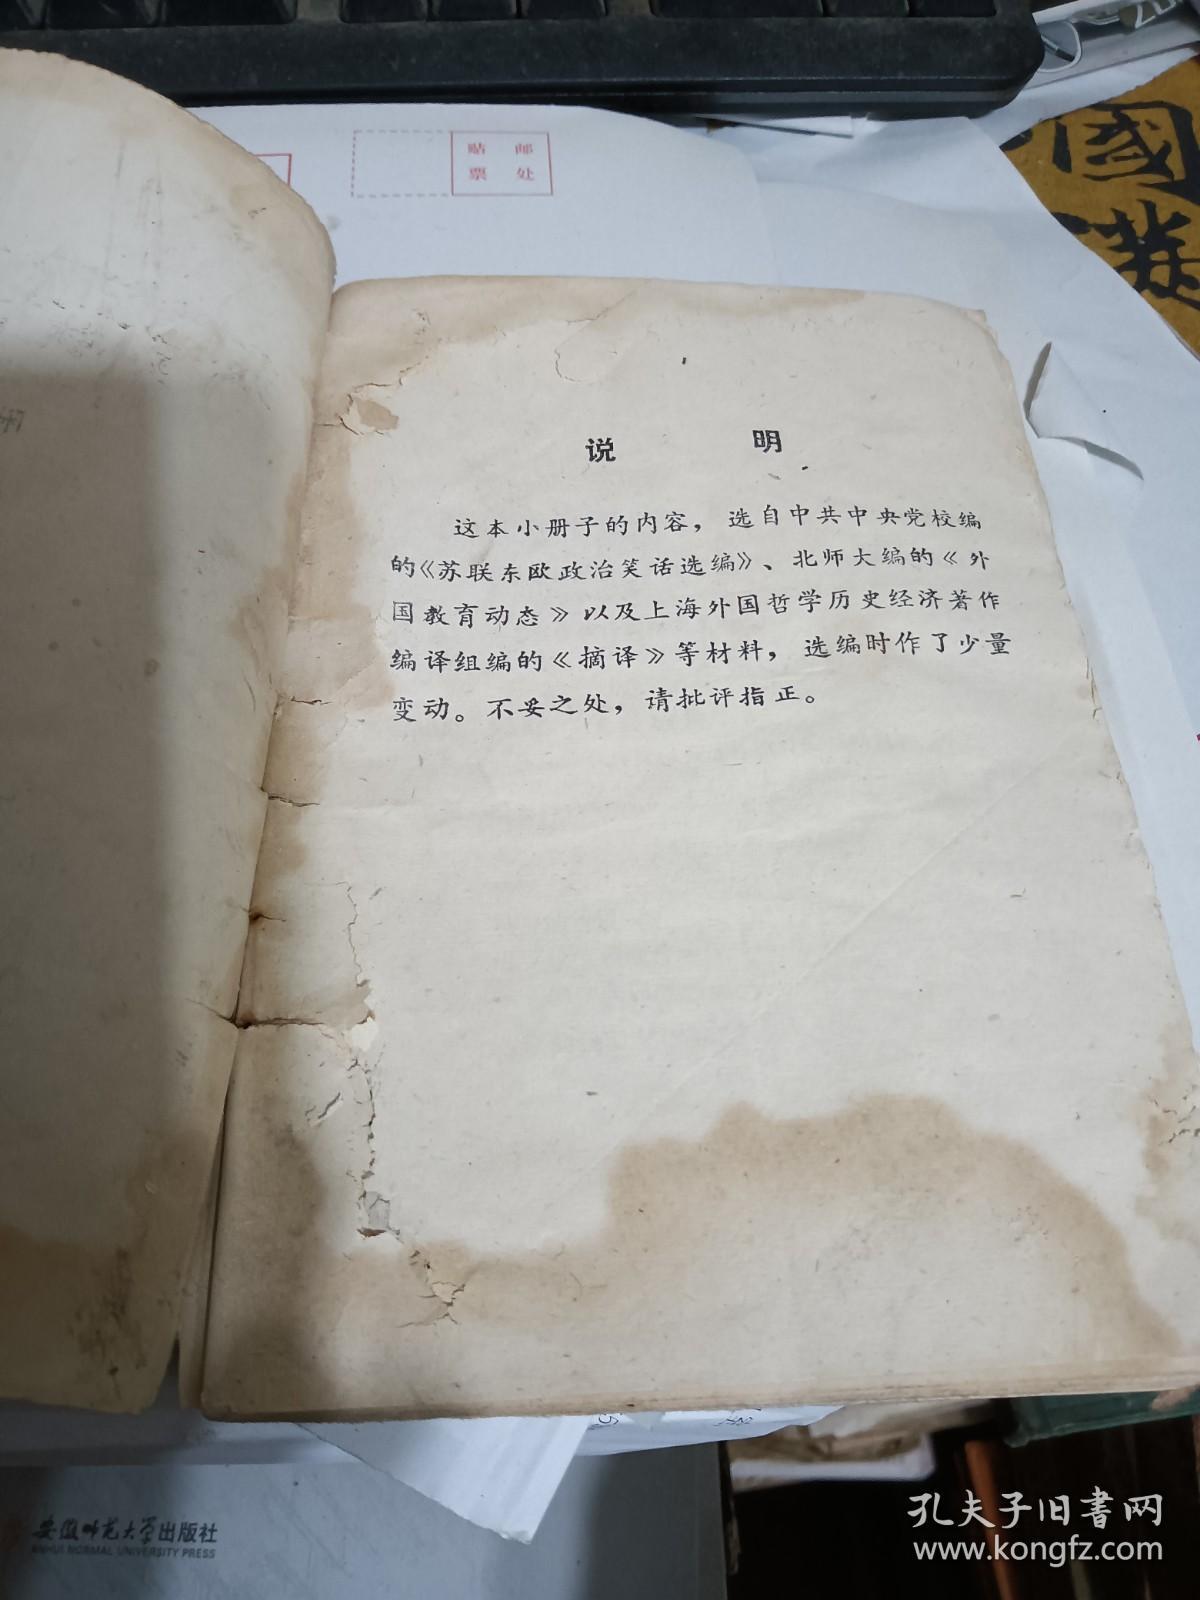 贴 邮
票 处
國
说 明
这本小册子的内容，选自中共中央党校编
的《苏联东欧政治笑话选编》、北师大编的《外
国教育动态》以及上海外国哲学历史经济著作
编译组编的《摘译》等材料，选编时作了少量
变动。不妥之处，请批评指正。
安徽师范大学出版社
ANHUI NORMAL UNIVERSITY PRESS
孔夫子旧书网
www.kongfz.com